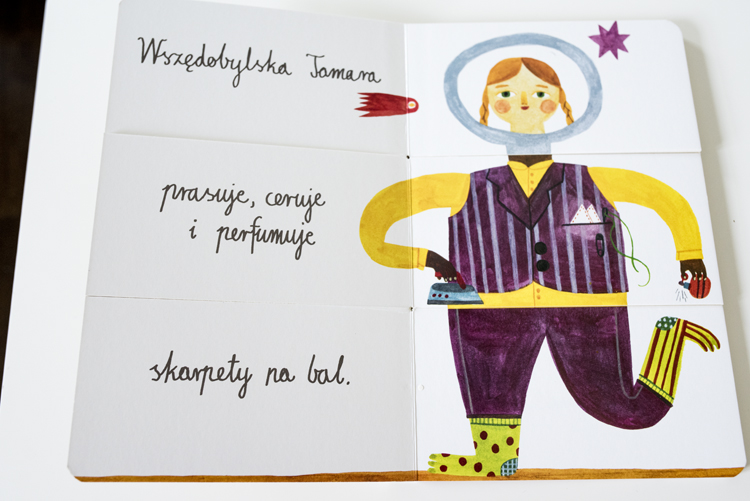 Wszędobylska Tamara
prasuje, ceruje
i perfumuje
skarpety na bal.